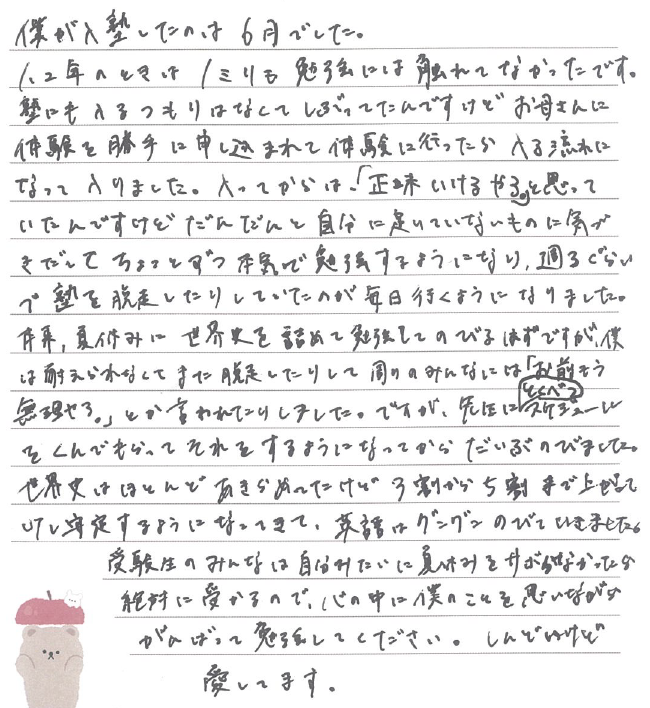 僕が入塾したのは6月でした。
1、2年のときは1ミリも勉強には触れてなかったです。
塾にも入るつもりはなくてしぶってたんですけどお母さんに
体験を勝手に申し込まれて体験に行ったら入る流れに
なって入りました。入ってからは、「正味いけるやろ」と思って
いたんですけどだんだんと自分に足りていないものに気づ
きだしてちょっとずつ本気で勉強するようになり、週3ぐらい
で塾を脱走したりしていたのが毎日行くようになりました。
本来、夏休みに世界史を詰めて勉強してのびるはずですが、僕
は耐えられなくてまた脱走したりして周りのみんなには「お前もう
無理やろ。」とか言われてたりしました。ですが、先生にとくべつスケジュール
をくんでもらってそれをするようになってからだいぶのびました。
世界史はほとんどあきらめてたけど3割から5割まで上がって
安定するようになってきて、英語はグングンのびていきました。
受験生のみんなは自分みたいに夏休みをサボらなかったら
絶対に受かるので、心の中に僕のことを思いながら
がんばって勉強してください。しんどいけど
愛してます。